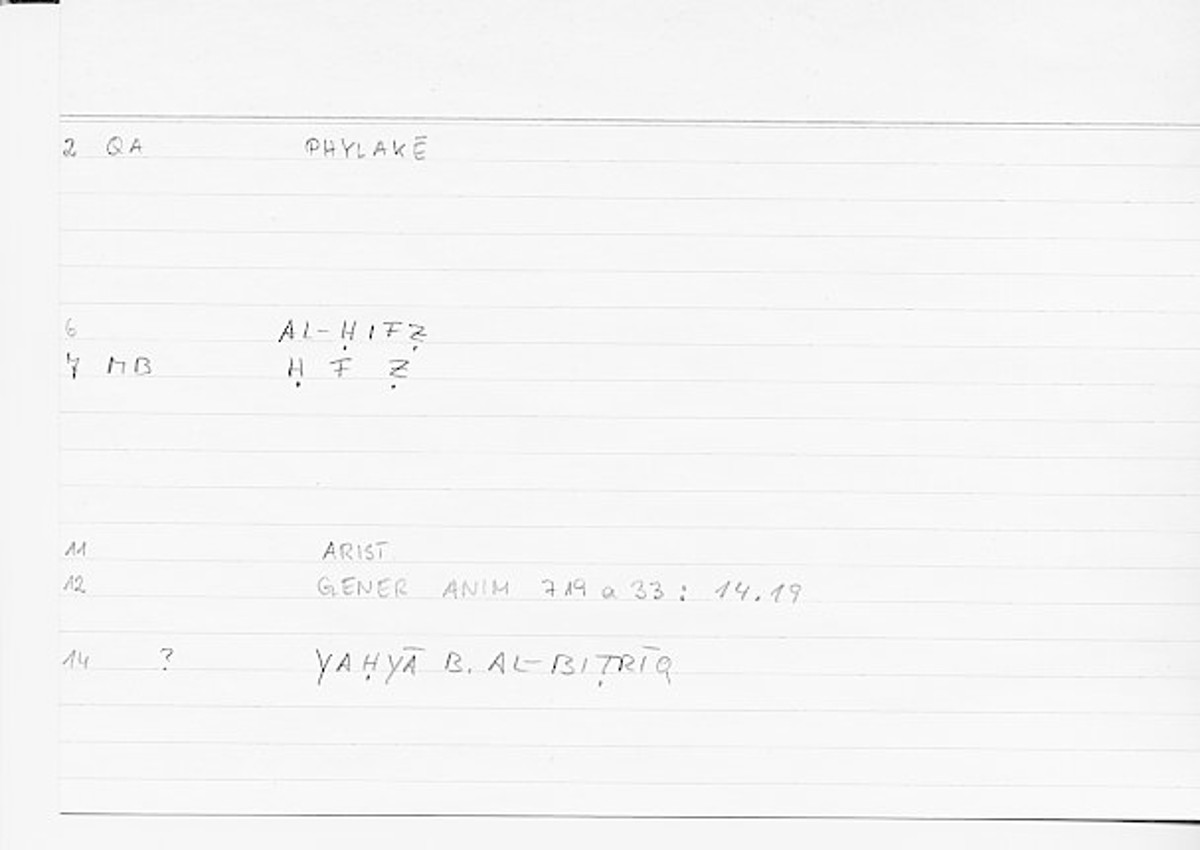 2 QA PHYLAKĒ
6 AL-ḤIFẒ
7 MB Ḥ F Ẓ
11 ARIST
12 GENER ANIM 719 a 33 : 14.19
14 ? YAḤYĀ B. AL-BIṬRĪQ